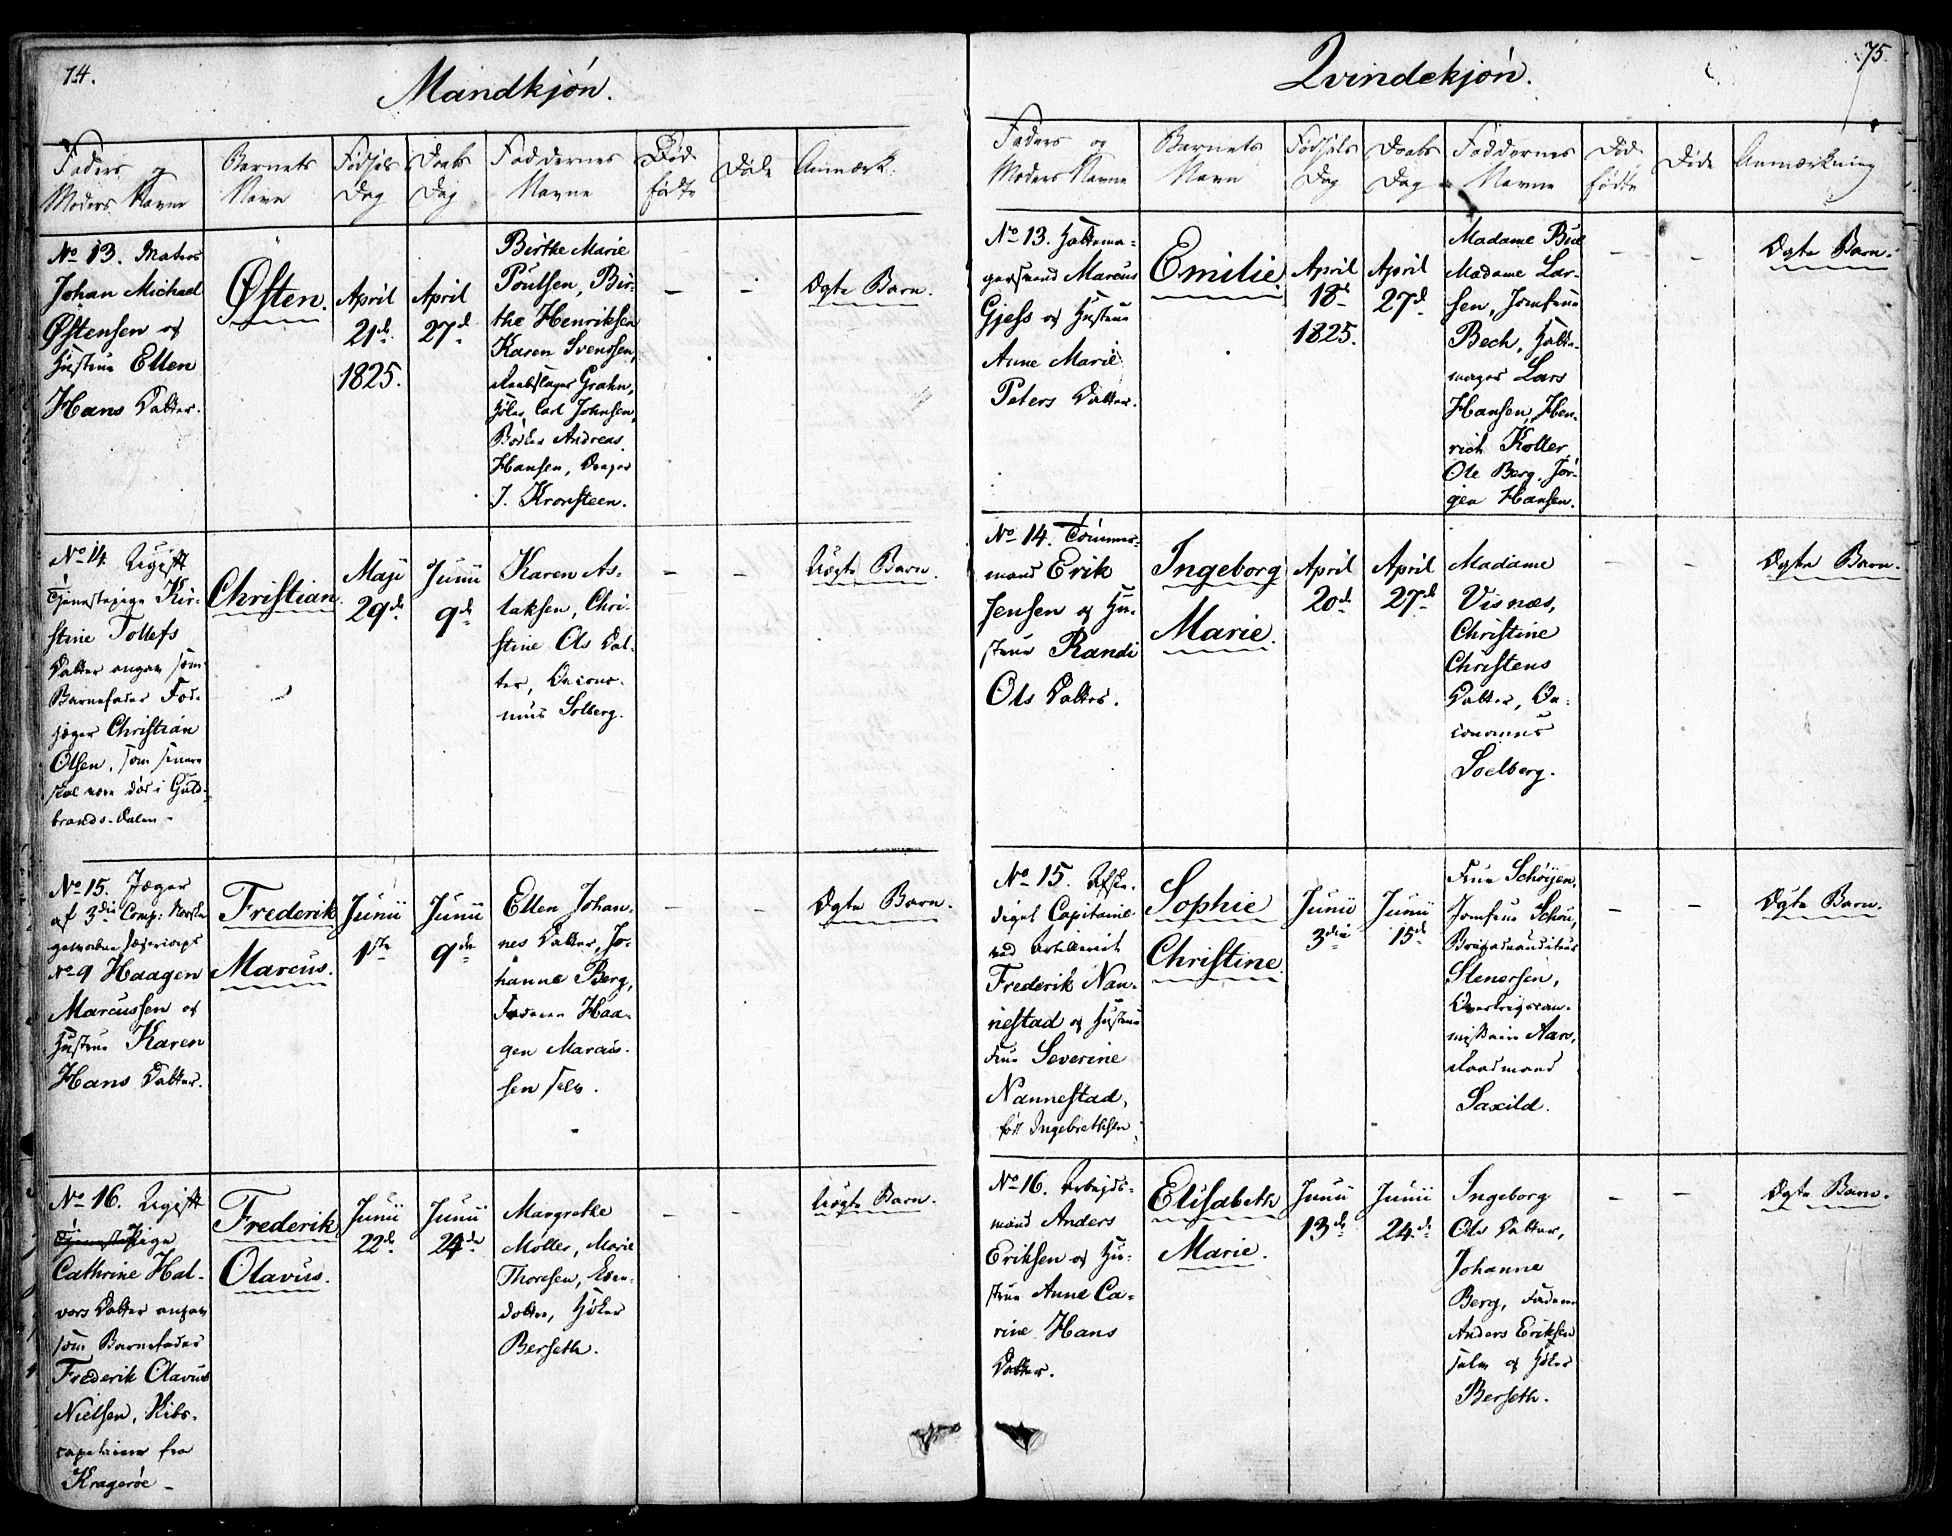 74.
Mandkjøn.
Faders og
Moders Navne
Barnets
Navn
Fødsels
Dag
Daabs
Dag
Faddernes
Navne
Død
fødte
Døde
Anmærk.
No 13. Matros
Johan Michael
Østensen og
Hustrue Ellen
Hans Datter.
Østen.
April
21de
1825.
April
27de
Birthe Marie
Poulsen, Bir-
the Henriksen
Karen Svendsen,
Grahn,
Carl Johnsen,
Bødker Andreas
Hansen,
J. Kronsteen.
-
-
Ægte Barn.
No 14. Ugift
Tjenestepige Kir-
stine Tollefs
Datter angav som
Barnefader Fod-
jæger Christian
Olsen, som senere
skal være død i Guld-
brands-Dalen -
Christian.
Maji
29de
Junii
9de
Karen As-
laksen, Chri-
stine Ols Dat-
ter, Oecono-
mus Solberg.
-
-
Uægte Barn.
No 15. Jæger
af 3die Comp: Norske
gevorbne Jægercorps
No 9 Haagen
Marcussen og
Hustrue Karen
Hans Datter.
Frederik
Marcus.
Junii
1ste
Junii
9de
Ellen Johan-
nes Datter, Jo-
hanne Berg,
Faderen Haa-
gen Marcus-
sen selv.
-
-
Ægte Barn.
No 16. Ugift
Tjenestepige
Cathrine Hal-
vors Datter angav
som Barnefader
Frederik Olavus
Nielsen, Skibs-
capitaine fra
Kragerøe -
Frederik
Olavus.
Junii
22de
Junii
24de
Margrethe
Møller, Marie
Thoresen, Even-
datter, Høker
Berseth.
-
-
Uægte Barn.
75.
Qvindekjøn.
Faders og
Moders Navne
Barnets
Navn
Fødsels
Dag
Daabs
Dag
Faddernes
Navne
Død
fødte
Døde
Anmærkning
No 13. Hattema-
gersvend Marcus
Gjess og Hustrue
Anne Marie
Peters Datter.
Emilie.
April
18de
1825.
April
27de
Madame Bue
Madame Lar-
sen, Jomfrue
Bech, Hatte-
mager Lars
Hansen, Hen-
rich Koller
Ole Berg, Jør-
gen Hansen.
-
-
Ægte Barn.
No 14. Tømmer-
mand Erik
Jensen og Hu-
strue Randi
Ols Datter.
Ingeborg
Marie.
April
20de
April
27de
Madame
Visnæs,
Christine
Christens
Datter, Oe-
conomus
Soelberg.
-
-
Ægte Barn.
No 15. Afske-
diget Capitaine
ved Artilleriet
Frederik Nan-
nestad og Hustrue
Frue Severine
Nannestad,
født Ingebrethsen
Sophie
Christine.
Junii
3die
Junii
15de
Frue Schøyen,
Jomfrue Schou,
Brigadeauditeur
Stenersen,
Overkrigscom-
missair Aars,
Raadmand
Saxild.
-
-
Ægte Barn.
No 16. Arbejds-
mand Anders
Eriksen og Hu-
strue Anne Ca-
rine Hans
Datter.
Elisabeth
Marie.
Junii
13de
Junii
24de
Ingeborg
Ols Datter,
Johanne
Berg, Faderen
Anders Eriksen
selv og Høker
Berseth.
-
-
Ægte Barn.